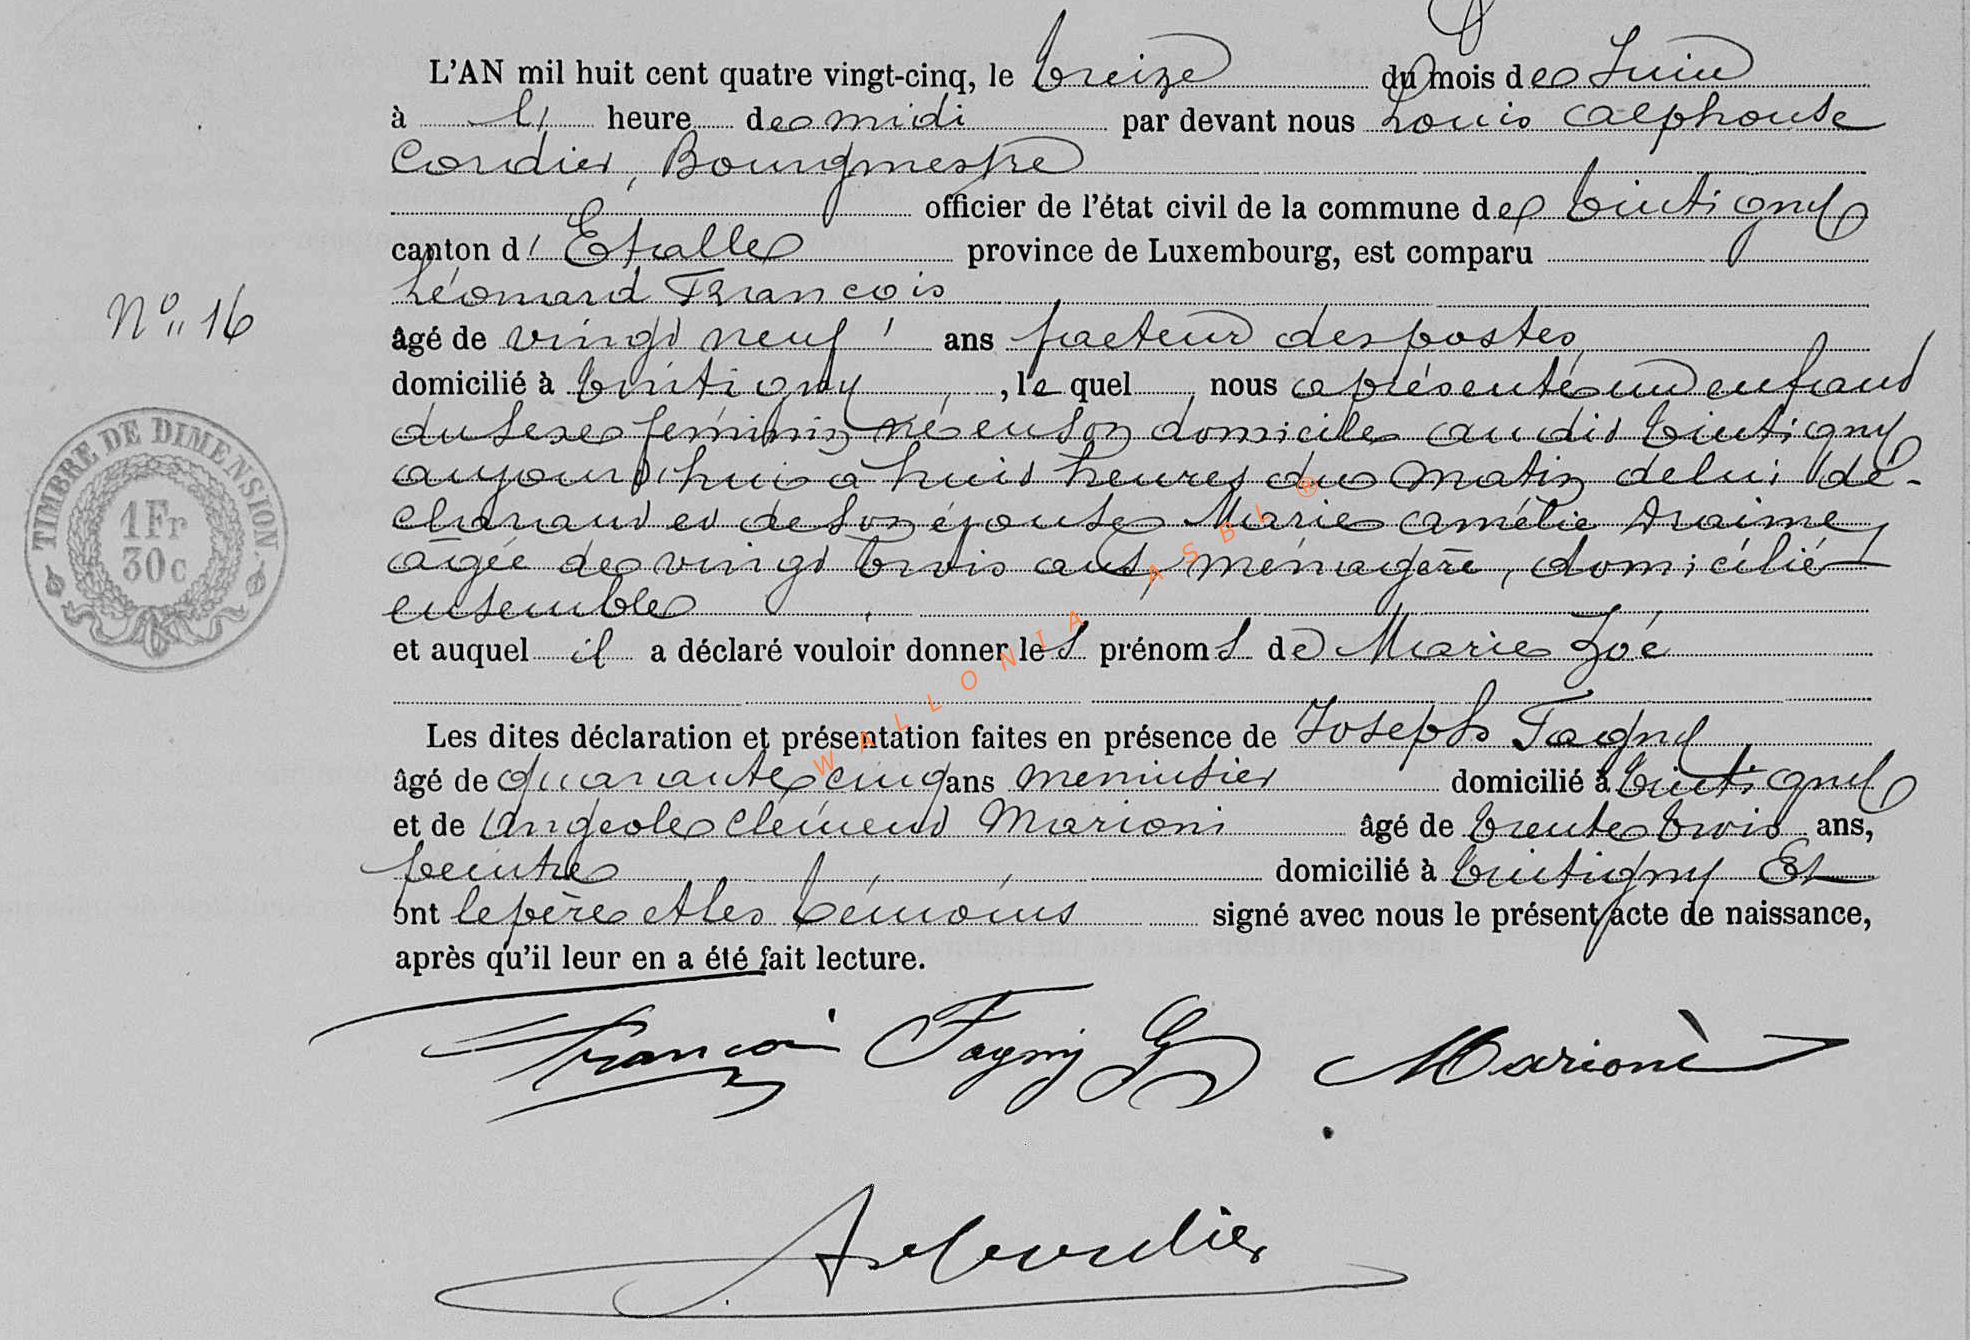 L'AN mil huit cent quatre vingt-cinq, le treize du mois de Juin
à heure de midi par devant nous Louis Alphonse
Cordier, Bourgmestre
officier de l'état civil de la commune de Tintigny
canton d'Etalle province de Luxembourg, est comparu
Léonard François
N° 16
âgé de vingt neuf ans facteur des postes
domicilié à Tintigny, le quel nous a présenté un enfant
du sexe féminin né en son domicile au dit Tintigny
aujourd'hui à huit heures du matin de lui dé-
clarant et de son épouse Marie Amélie Draime,
âgée de vingt trois ans, ménagère, domicilié
ensemble
et auquel il a déclaré vouloir donner les prénoms de Marie Zoé
Les dites déclaration et présentation faites en présence de Joseph Fagny
âgé de quarante cinq ans menuisier domicilié à Tintigny
et de Angeole Clément Marioni âgé de trente trois ans,
peintre domicilié à Tintigny Et
ont le père et les témoins signé avec nous le présent acte de naissance,
après qu'il leur en a été fait lecture.
François Fagny Marioni
A Cordier
TIMBRE DE DIMENSION.
1Fr
30c
WALLONIA ASBL ®